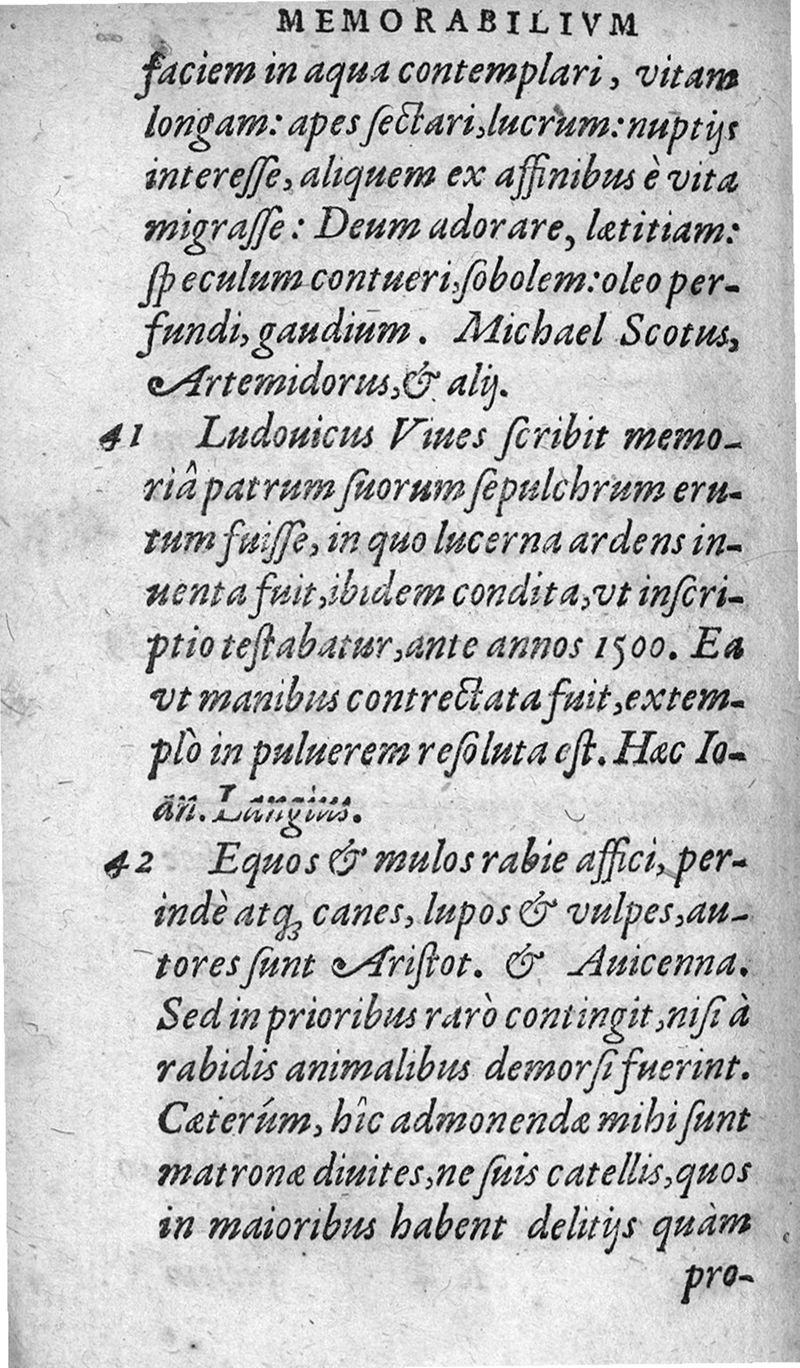 MEMORABILIVM
faciem in aqua contemplari, vitam
longam: apes ſectari, lucrum: nuptijs
intereſſe, aliquem ex affinibus è vita
migraſſe: Deum adorare, lætitiam:
ſpeculum contueri, ſobolem: oleo per-
fundi, gaudium. Michael Scotus,
Artemidorus, & alij.
41 Ludouicus Viues ſcribit memo-
riâ patrum ſuorum ſepulchrum eru-
tum fuiſſe, in quo lucerna ardens in-
uenta fuit, ibidem condita, vt inſcri-
ptio teſtabatur, ante annos 1500. Ea
vt manibus contrectata fuit, extem-
plò in puluerem reſoluta eſt. Hæc Io-
an. Langius.
42 Equos & mulos rabie affici, per-
indè atq; canes, lupos & vulpes, au-
tores ſunt Ariſtot. & Auicenna.
Sed in prioribus rarò contingit, niſi à
rabidis animalibus demorſi fuerint.
Cæterúm, hîc admonendæ mihi ſunt
matronæ diuites, ne ſuis catellis, quos
in maioribus habent delitijs quàm
pro-